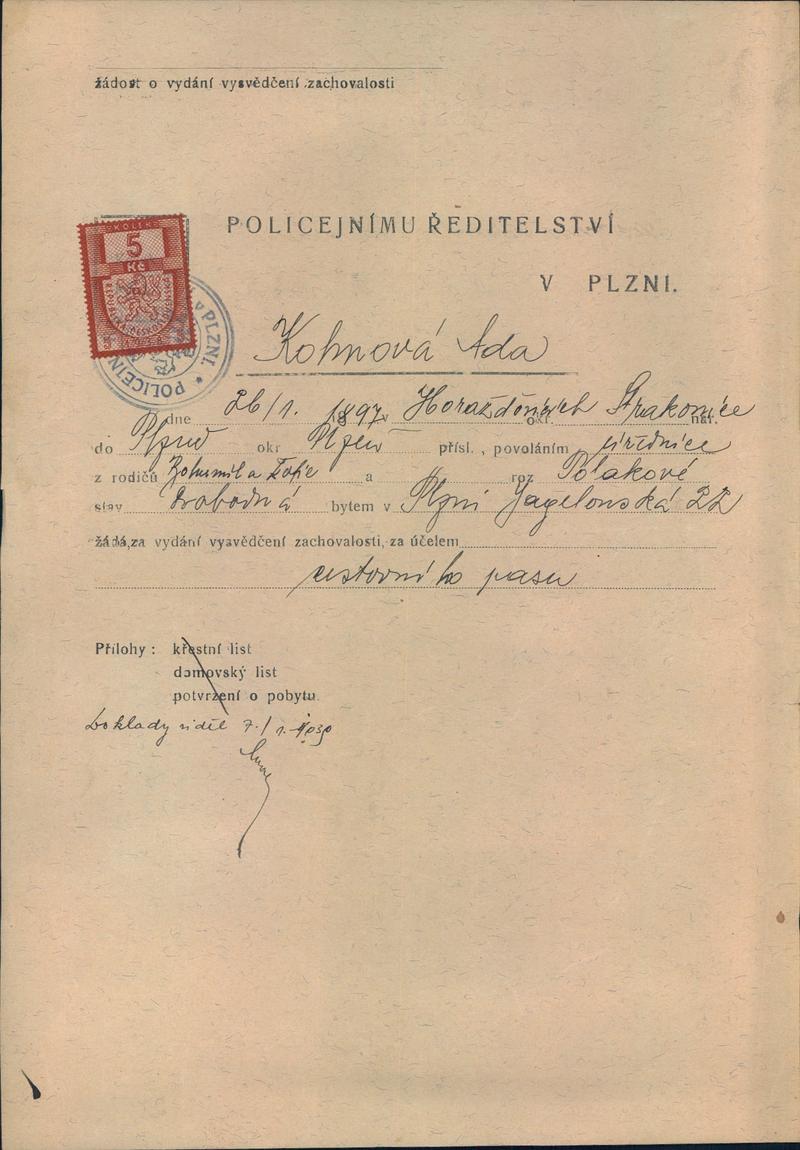 žádost o vydání vysvědčení zachovalosti
KOLEK
5
Kč
POLICEJNÍMU ŘEDITELSTVÍ
V PLZNI.
POLICEJN V PLZNI.
Kohnová Ada
dne 26/1. 1897 v Horažďovicích okr. Strakonice nar.
do Plzně okr Plzeň přísl., povoláním úřednice
z rodičů Bohumil a Žofie a roz Polákové
stav svobodná bytem v Plzni Jagelonská 22
žádá,za vydání vysvědčení zachovalosti, za účelem
cestovního pasu
Přílohy : křestní list
domovský list
potvrzení o pobytu.
Doklady viděl 7./1.